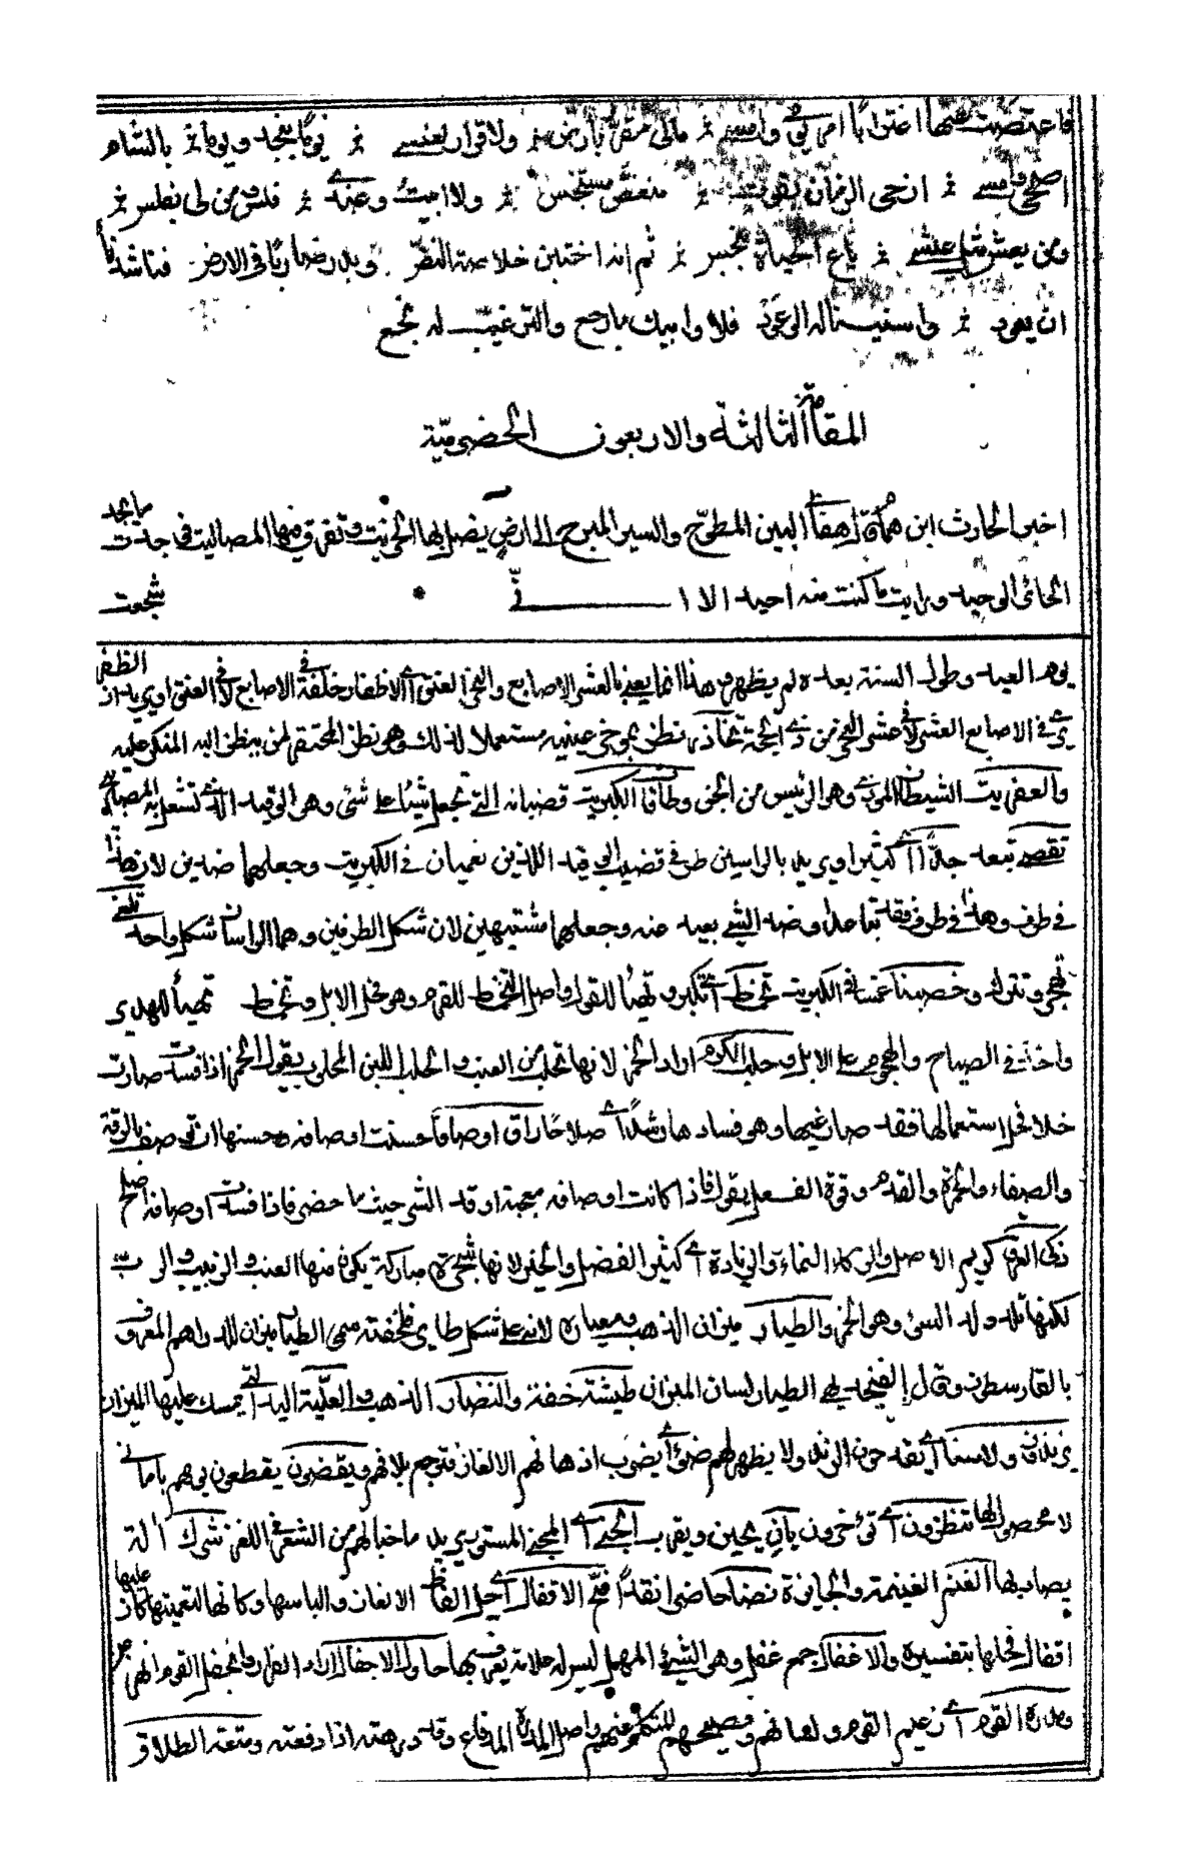 فاعتضت عنها اغترابا امر يومي وامسي ۞ مالي مقر بارض ۞ ولا قرار لعنسي ۞ يوما بنجد ويوما ۞ بالشام
اضحي وامسي ۞ ازجي الزمان بقوت ۞ منغص مستخس ۞ ولا ابيت وعندي ۞ فلس ومن لي بفلس ۞
ومن يعش مثل عيشي ۞ باع الحياة ببخس ۞ ثم انه اختبن خلاصة النض وبدر ضاربا في الارض فناشدناه
ان يعود ۞ واسنينا له الوعود فلا وابيك ما رجع ولا الترغيب له نجع
المقامة الثالثة والاربعون الحضرمية
اخبر الحارث ابن همام قال هفا بي البين المطوح والسير المبرح الى ارض يضل بها الخريت وتفرق فيها المصاليت فوجدت ما يجد
الحائر الوحيد ورايت ما كنت منه احيد الا اني شجعت
يوم العيد وطول السنة بعده لم يظهر هذا انما يعني بالعشر الاصابع والنحر العنق اي الاظفار خلفة في الاصابع لا في العنق او يريد ان الظفر
يرى في الاصابع العشر لا في عشر النحر من ذي الحجة تخازر نظر بموخر عينيه مستعملا لذلك وهو نظر المحتقر لمن ينظر اليه المنكر عليه
والعفريت الشيطان المريد وهو الرئيس من الجن وطاقة الكبريت قضبانه التي تجعل شيئا على شئ وهي الوقيد الذي تشعل به المصابيح
تقصيه تبعد جدا اي كثيرا ويريد بالراسين طرفي قضيب الوقيد اللذين يغمسان في الكبريت وجعلهما ضدين لان هذا
في طرف وهذا في طرف فقد تباعدا وضد الشئ بعيد عنه وجعلهما مشتبهين لان شكل الطرفين وهما الراسان شكل واحد تلغى
تهجر وتترك وخصبتا غمستا في الكبريت تخمط اي تكبر وتهيأ للقول واصل التخمط للقرم وهو فحل الابل وتخمط تهيأ للهدير
واخذ في الصياح والهجوم على الابل وحلب الكرم اراد الخمر لانها تحلب من العنب والحلب اللبن المحلوب يقول الخمر اذا فسدت صارت
خلا فحل استعمالها فقد صار غيها وهو فسادها رشدا اي صلاحا راق اوصافا حسنت اوصافه وحسنها ان توصف بالرقة
والصفاء والحمرة والقدم وقوة الفعل يقول فاذا كانت اوصافه معجبة اوقد الشر حيث ما حضر فاذا فسدت اوصافه اصلح
زكي العرق كريم الاصل والزكاء النماء والزيادة اي كثير الفضل والخير لانها شجرة مباركة يكون منها العنب والزبيب والرب
لكنها تلد ولد السوء وهو الخمر والطيار ميزان الذهب ومعياره لانه على شكل طاير فلخفته سمي الطيار ميزان للدراهم المعروف
بالقارسطون وقال الفنجديهي الطيار لسان الميزان طيشة خفة والنضار الذهب والعلية اليد التي يمسك عليها الميزان
يزيدان ولا سنا اي يقدحون الزند ولا يظهر لهم ضوء اي يضرب اذهانهم الالغاز فترجع بلا فهم ويقضون يقطعون يومهم باماني
لا محصول لها تنظرون اي تؤخرون يان يحين ويقرب الخبي اي المخبئ المستور يريد ما خبا لهم من الشعر في اللغز شرك الة
يصاد بها الغنم الغنيمة والجايزة نضا حاضرا نقدا فتح الاقفال اي حل الفاظ الالغاز والباسها وكانها لتعميتها كان عليها
اقفال فحلها بتفسيره والاغفال جمع غفل وهو الشئ المهمل ليس له علامة يعرف بها حاول الاجفال اراد الفرار وانجفل القوم انهزموا
ومدره القوم اي زعيم القوم ولسانهم وفصيحهم المتكلم عنهم واصل المدره المدافع وقد درهته اذا دفعته ومتعة الطلاق